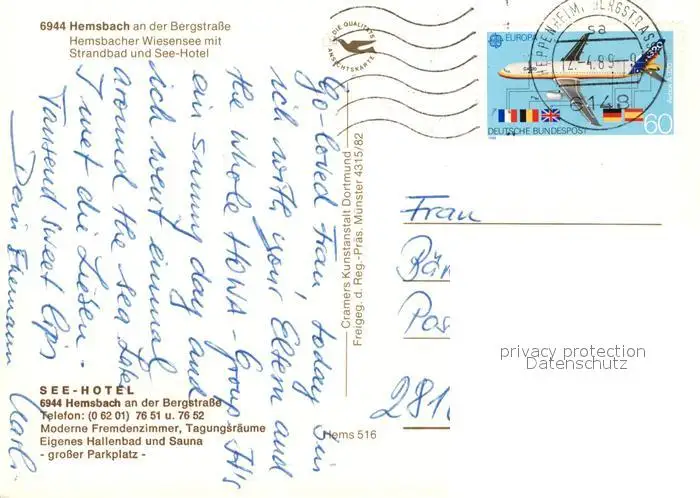 6944 Hemsbach an der Bergstraße
Hemsbacher Wiesensee mit
Strandbad und See-Hotel
DIE QUALITÄTS
ANSICHTSKARTE
EUROPA
DEUTSCHE BUNDESPOST
60
HEPPENHEIM, BERGSTRASSE
sa
12.-4.89.-9
6148
loved Frau, today bin
ich with your Eltern and
the whole HOWA-Group. It's
ein sunny day and
ich went einmal
around the sea. Later
I met die Lieben.
Tausend sweet lips
Dein Ehemann
Cramers Kunstanstalt Dortmund
Freigeg. d. Reg.-Präs. Münster 4315/82
Frau
Bär
Pos
281
privacy protection
Datenschutz
SEE-HOTEL
6944 Hemsbach an der Bergstraße
Telefon: (0 62 01) 76 51 u. 76 52
Moderne Fremdenzimmer, Tagungsräume
Eigenes Hallenbad und Sauna
- großer Parkplatz -
Hems 516